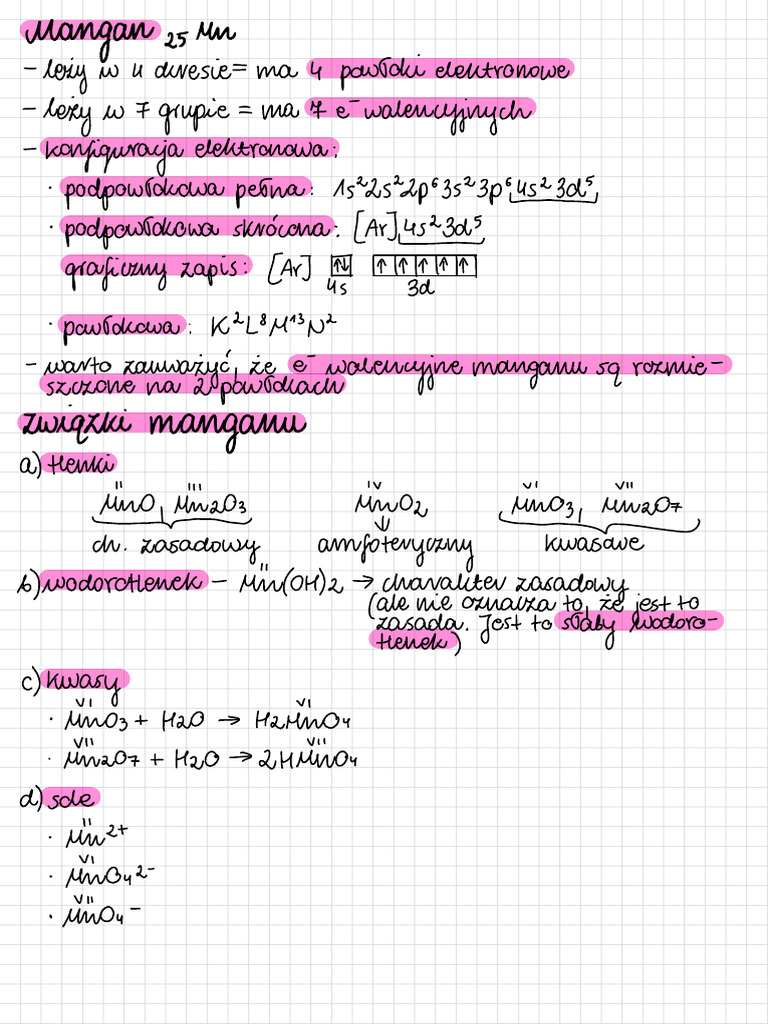 Mangan ₂₅Mn
- leży w 4 okresie = ma 4 powłoki elektronowe
- leży w 7 grupie = ma 7 e⁻ walencyjnych
- konfiguracja elektronowa:
· podpowłokowa pełna: 1s²2s²2p⁶3s²3p⁶4s²3d⁵
· podpowłokowa skrócona: [Ar]4s²3d⁵
graficzny zapis: [Ar] ↑↓ ↑ ↑ ↑ ↑ ↑
4s 3d
· powłokowa: K²L⁸M¹³N²
- warto zauważyć, że e⁻ walencyjne manganu są rozmie-
szczone na 2 powłokach
związki manganu
a) tlenki
II III IV VI VII
MnO, Mn2O3 MnO2 MnO3, Mn2O7
↓
ch. zasadowy amfoteryczny kwasowe
II
b) wodorotlenek – Mn(OH)2 → charakter zasadowy
(ale nie oznacza to, że jest to
zasada. Jest to słaby wodoro-
tlenek)
c) kwasy
VI VI
· MnO3 + H2O → H2MnO4
VII VII
· Mn2O7 + H2O → 2HMnO4
d) sole
II
· Mn²⁺
VI
· MnO4²⁻
VII
· MnO4⁻